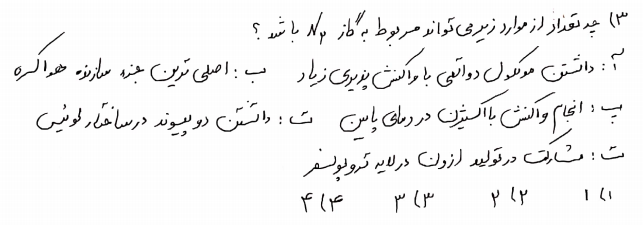 ۳) چه تعداد از موارد زیر می تواند مربوط به گاز N₂ باشد ؟
آ : داشتن مولکول دواتمی با واکنش پذیری زیاد ب : اصلی ترین جزء سازنده هواکره
پ : انجام واکنش با اکسیژن در دمای پایین ت : داشتن دو پیوند در ساختار لوئیس
ث : مشارکت در تولید ازون در لایه تروپوسفر
۱) ۱ ۲) ۲ ۳) ۳ ۴) ۴